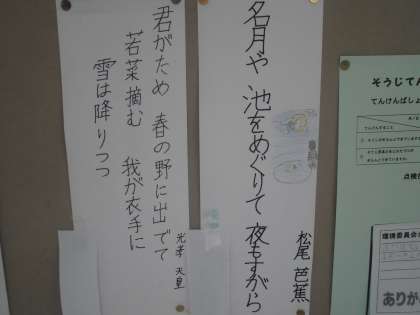 君がため 春の野に出でて
若菜摘む 我が衣手に
雪は降りつつ
光孝 天皇
名月や 池をめぐりて 夜もすがら
松尾 芭蕉
そうじてん
てんけんばしょ
点検
環境委員会
ありが